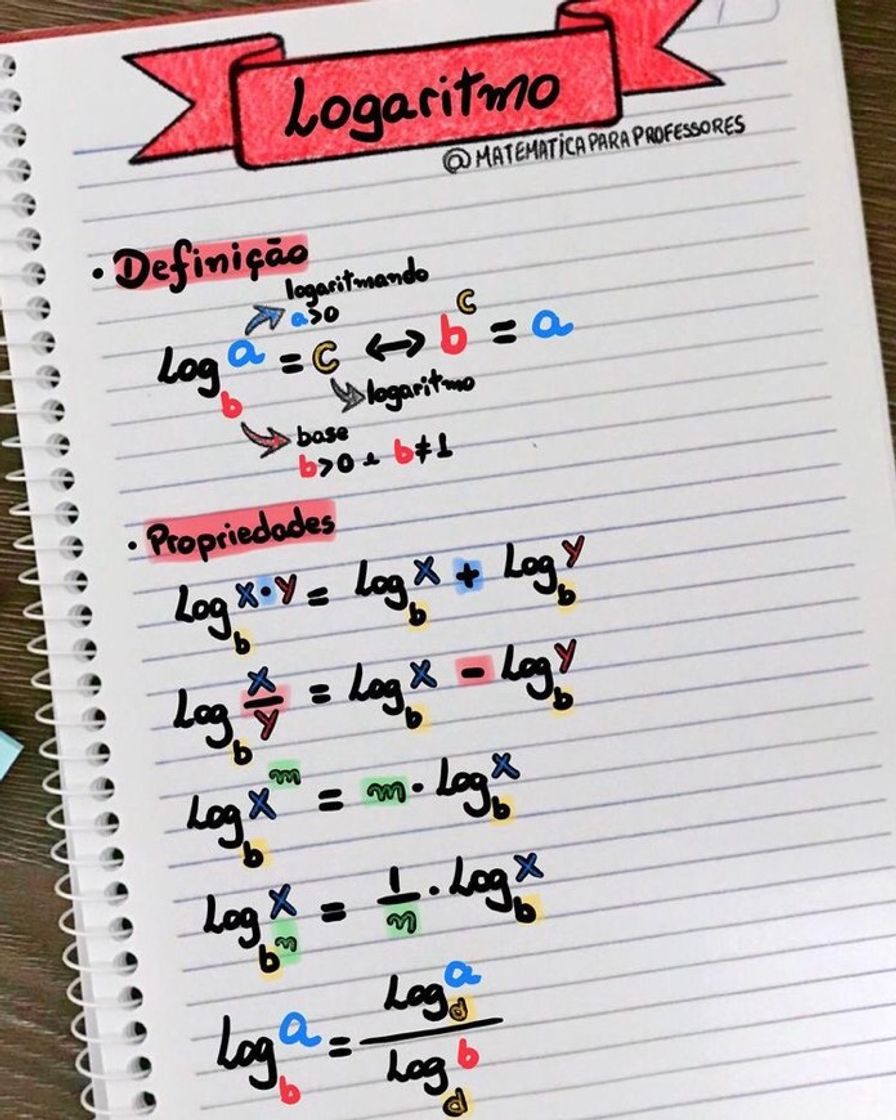 Logaritmo
@MATEMATICAPARAPROFESSORES
• Definição
logaritmando
a>0
log_b a = c ↔ b^c = a
logaritmo
base
b>0 e b≠1
• Propriedades
log_b x·y = log_b x + log_b y
log_b x/y = log_b x - log_b y
log_b x^m = m · log_b x
log_b^m x = 1/m · log_b x
log_b a = log_d a / log_d b